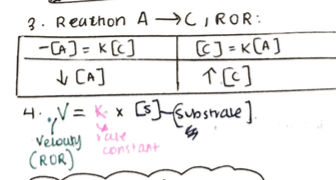 3. Reathon A → C, ROR:
-[A] = K[C] [C] = K[A]
↓ [A] ↑ [C]
4. V = K x [S] - [Substrate]
Velouty rate
(ROR) constant